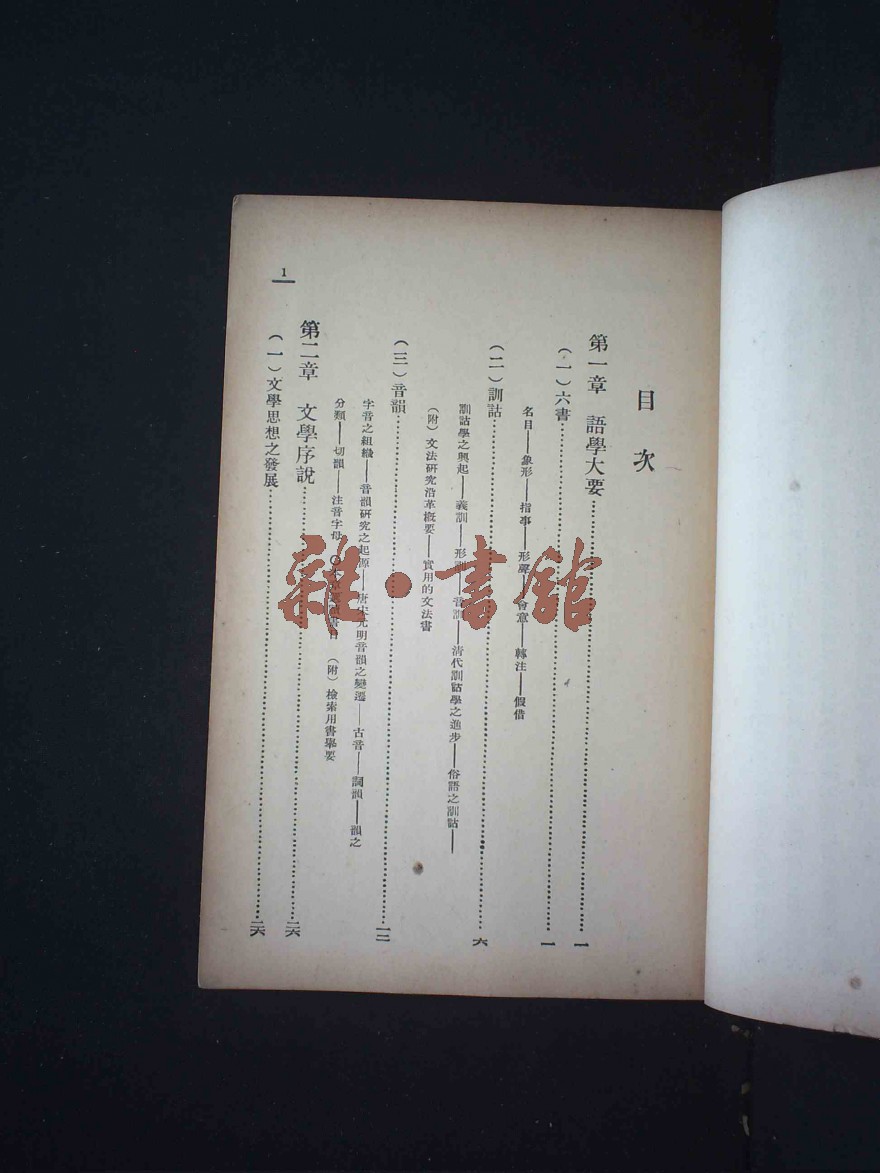 目次
第一章 語學大要……一
(一)六書……一
名目——象形——指事——形聲——會意——轉注——假借
(二)訓詁……六
訓詁學之興起——義訓——形訓——音訓——清代訓詁學之進步——俗語之訓詁——
(附)文法研究沿革概要——實用的文法書
(三)音韻……一二
字音之組織——音韻研究之起源——唐宋元明音韻之變遷——古音——詞韻——韻之
分類——切韻——注音字母 (附)檢索用書舉要
第二章 文學序說……二六
(一)文學思想之發展……二六
1
雜·書館